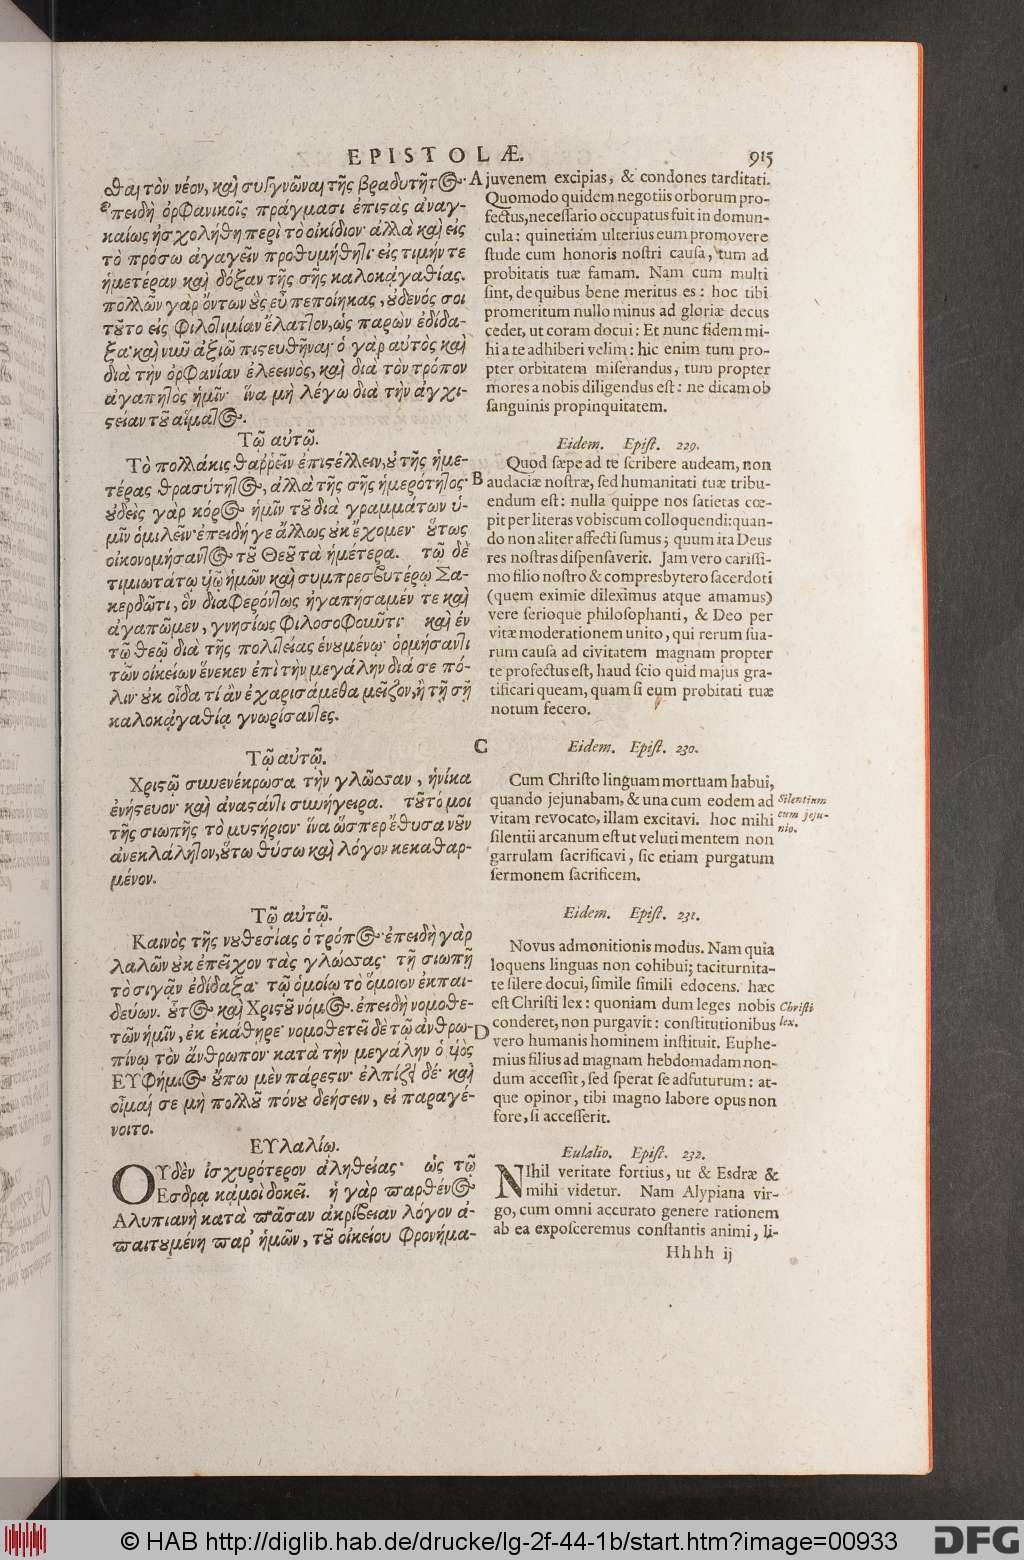 EPISTOLÆ.
915
θαι τὸν νέον, καὶ συγγνῶναι τῆς βραδυτῆτος·
ἐπειδὴ ὀρφανικοῖς πράγμασι ἐπιστὰς ἀναγ-
καίως ἠσχολήθη περὶ τὸ οἰκίδιον· ἀλλὰ καὶ εἰς
τὸ πρόσω ἀγαγεῖν προθυμήθητι· εἰς τιμήν τε
ἡμετέραν καὶ δόξαν τῆς σῆς καλοκἀγαθίας.
πολλῶν γὰρ ὄντων οὓς εὖ πεποίηκας, οὐδενός σοι
τοῦτο εἰς φιλοτιμίαν ἔλαττον, ὡς παρὼν ἐδίδα-
ξα· καὶ νῦν ἀξιῶ πιστευθῆναι· ὁ γὰρ αὐτὸς καὶ
διὰ τὴν ὀρφανίαν ἐλεεινὸς, καὶ διὰ τὸν τρόπον
ἀγαπητὸς ἡμῖν· ἵνα μὴ λέγω διὰ τὴν ἀγχι-
στείαν τοῦ αἵματος.
Τῷ αὐτῷ.
Τὸ πολλάκις θαῤῥεῖν ἐπιστέλλειν, οὐ τῆς ἡμε-
τέρας θρασύτητος, ἀλλὰ τῆς σῆς ἡμερότητος·
οὐδεὶς γὰρ κόρος ἡμῖν τοῦ διὰ γραμμάτων ὑ-
μῖν ὁμιλεῖν· ἐπειδή γε ἄλλως οὐκ ἔχομεν· οὕτως
οἰκονομήσαντος τοῦ Θεοῦ τὰ ἡμέτερα. τῷ δὲ
τιμιωτάτῳ υἱῷ ἡμῶν καὶ συμπρεσβυτέρῳ Σα-
κερδῶτι, ὃν διαφερόντως ἠγαπήσαμέν τε καὶ
ἀγαπῶμεν, γνησίως φιλοσοφοῦντι· καὶ ἐν
τῷ θεῷ διὰ τῆς πολιτείας ἑνουμένῳ· ὁρμήσαντι
τῶν οἰκείων ἕνεκεν ἐπὶ τὴν μεγάλην διὰ σε πό-
λιν· οὐκ οἶδα τί ἂν ἐχαρισάμεθα μεῖζον, ἢ τῇ σῇ
καλοκἀγαθίᾳ γνωρίσαντες.
Τῷ αὐτῷ.
Χριστῷ συνενέκρωσα τὴν γλῶσσαν, ἡνίκα
ἐνήστευον· καὶ ἀναστάντι συνήγειρα. τοῦτό μοι
τῆς σιωπῆς τὸ μυστήριον· ἵνα ὥσπερ ἔθυσα νοῦν
ἀνεκλάλητον, οὕτω θύσω καὶ λόγον κεκαθαρ-
μένον.
Τῷ αὐτῷ.
Καινὸς τῆς νουθεσίας ὁ τρόπος· ἐπειδὴ γὰρ
λαλῶν οὐκ ἐπεῖχον τὰς γλώσσας· τῇ σιωπῇ
τὸ σιγᾷν ἐδίδαξα· τῷ ὁμοίῳ τὸ ὅμοιον ἐκπαι-
δεύων. οὗτος καὶ Χριστοῦ νόμος. ἐπειδὴ νομοθε-
τῶν ἡμῖν, ἐκ ἐκάθῃρε· νομοθετεῖ δὲ τῷ ἀνθρω-
πίνῳ τὸν ἄνθρωπον· κατὰ τὴν μεγάλην ὁ υἱὸς
ΕΥφήμιος οὔπω μὲν πάρεστιν· ἐλπίζει δέ· καὶ
οἶμαί σε μὴ πολλοῦ πόνου δεήσειν, εἰ παραγέ-
νοιτο.
ΕΥλαλίῳ.
ΟΥδὲν ἰσχυρότερον ἀληθείας· ὡς τῷ
Εσδρᾳ κᾀμοὶ δοκεῖ. ἡ γὰρ παρθένος
Αλυπιανὴ κατὰ πᾶσαν ἀκρίβειαν λόγον ἀ-
παιτουμένη παρ' ἡμῶν, τοῦ οἰκείου φρονήμα-
A juvenem excipias, & condones tarditati.
Quomodo quidem negotiis orborum pro-
fectus, necessario occupatus fuit in domun-
cula: quinetiam ulterius eum promovere
stude cum honoris nostri causa, tum ad
probitatis tuæ famam. Nam cum multi
sint, de quibus bene meritus es: hoc tibi
promeritum nullo minus ad gloriæ decus
cedet, ut coram docui: Et nunc fidem mi-
hi a te adhiberi velim: hic enim tum pro-
pter orbitatem miserandus, tum propter
mores a nobis diligendus est: ne dicam ob
sanguinis propinquitatem.
Eidem. Epist. 229.
Quod sæpe ad te scribere audeam, non
B audaciæ nostræ, sed humanitati tuæ tribu-
endum est: nulla quippe nos satietas cœ-
pit per literas vobiscum colloquendi: quan-
do non aliter affecti sumus; quum ita Deus
res nostras dispensaverit. Jam vero carissi-
mo filio nostro & compresbytero sacerdoti
(quem eximie dileximus atque amamus)
vere serioque philosophanti, & Deo per
vitæ moderationem unito, qui rerum sua-
rum causa ad civitatem magnam propter
te profectus est, haud scio quid majus gra-
tificari queam, quam si eum probitati tuæ
notum fecero.
C
Eidem. Epist. 230.
Cum Christo linguam mortuam habui,
quando jejunabam, & una cum eodem ad
vitam revocato, illam excitavi. hoc mihi
silentii arcanum est ut veluti mentem non
garrulam sacrificavi, sic etiam purgatum
sermonem sacrificem.
Silentium
cum jeju-
nio.
Eidem. Epist. 231.
Novus admonitionis modus. Nam quia
loquens linguas non cohibui; taciturnita-
te silere docui, simile simili edocens. hæc
est Christi lex: quoniam dum leges nobis
D conderet, non purgavit: constitutionibus
vero humanis hominem instituit. Euphe-
mius filius ad magnam hebdomadam non-
dum accessit, sed sperat se adfuturum: at-
que opinor, tibi magno labore opus non
fore, si accesserit.
Christi
lex.
Eulalio. Epist. 232.
NIhil veritate fortius, ut & Esdræ &
mihi videtur. Nam Alypiana vir-
go, cum omni accurato genere rationem
ab ea exposceremus constantis animi, li-
Hhhh ij
© HAB http://diglib.hab.de/drucke/lg-2f-44-1b/start.htm?image=00933
DFG